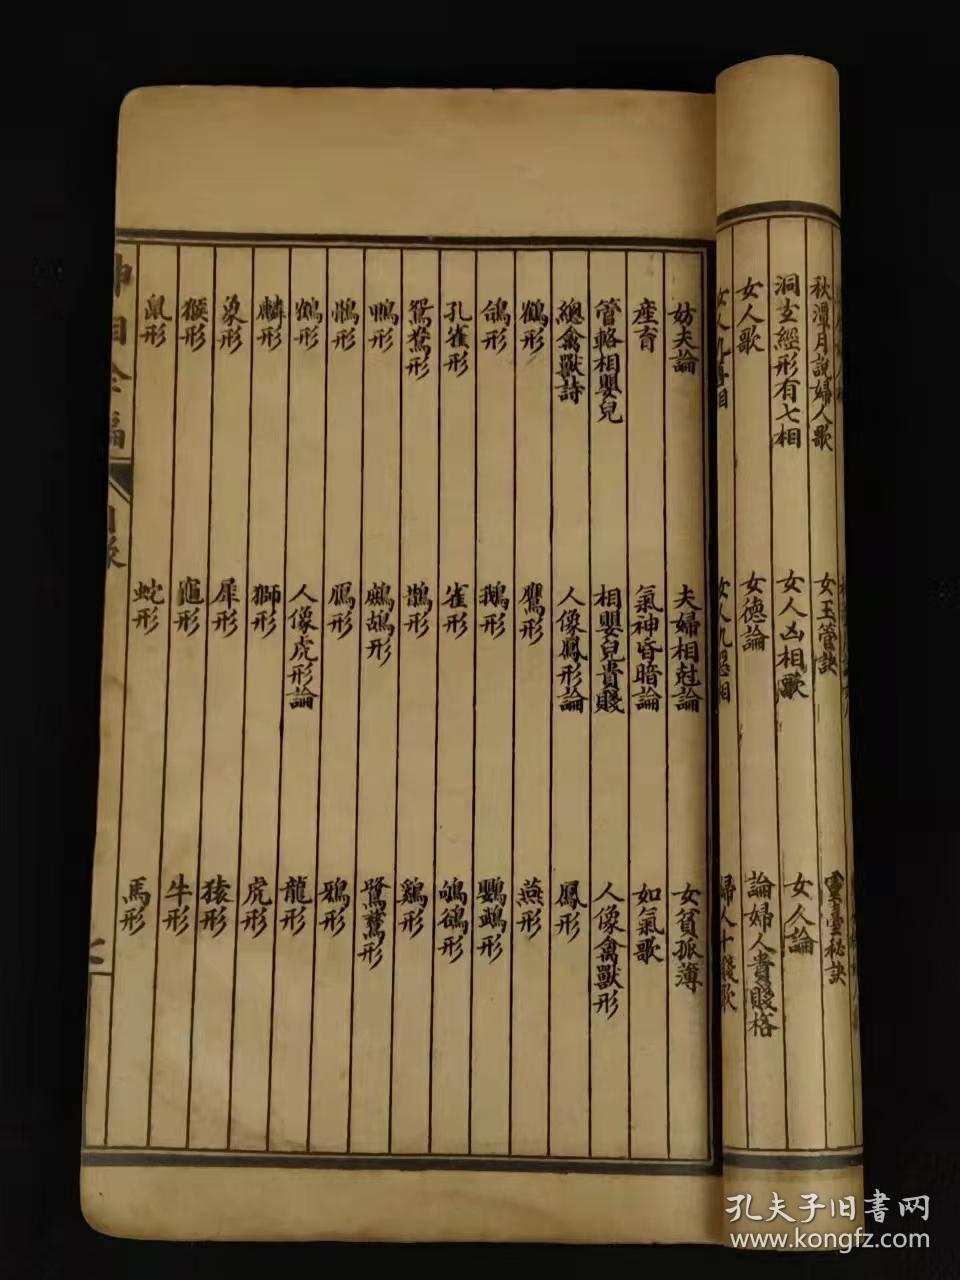 秋潭月說婦人歌 女玉管訣 靈臺秘訣
洞玄經形有七相 女人凶相歌 女人論
女人歌 女德論 論婦人貴賤格
女人九善相 女人九惡相 婦人十賤歌
妨夫論 夫婦相尅論 女貧孤薄
産育 氣神昏暗論 如氣歌
管輅相嬰兒 相嬰兒貴賤 人像禽獸形
總禽獸詩 人像鳳形論 鳳形
鶴形 鷹形 燕形
鴿形 鵝形 鸚鵡形
孔雀形 雀形 鴝鵒形
鴛鴦形 鵲形 雞形
鴨形 鷓鴣形 鷺鷥形
鶻形 鴈形 鴉形
鶴形 人像虎形論 龍形
麟形 獅形 虎形
象形 犀形 猿形
猴形 龜形 牛形
鼠形 蛇形 馬形
神相全編 目錄
孔夫子旧書网
www.kongfz.com